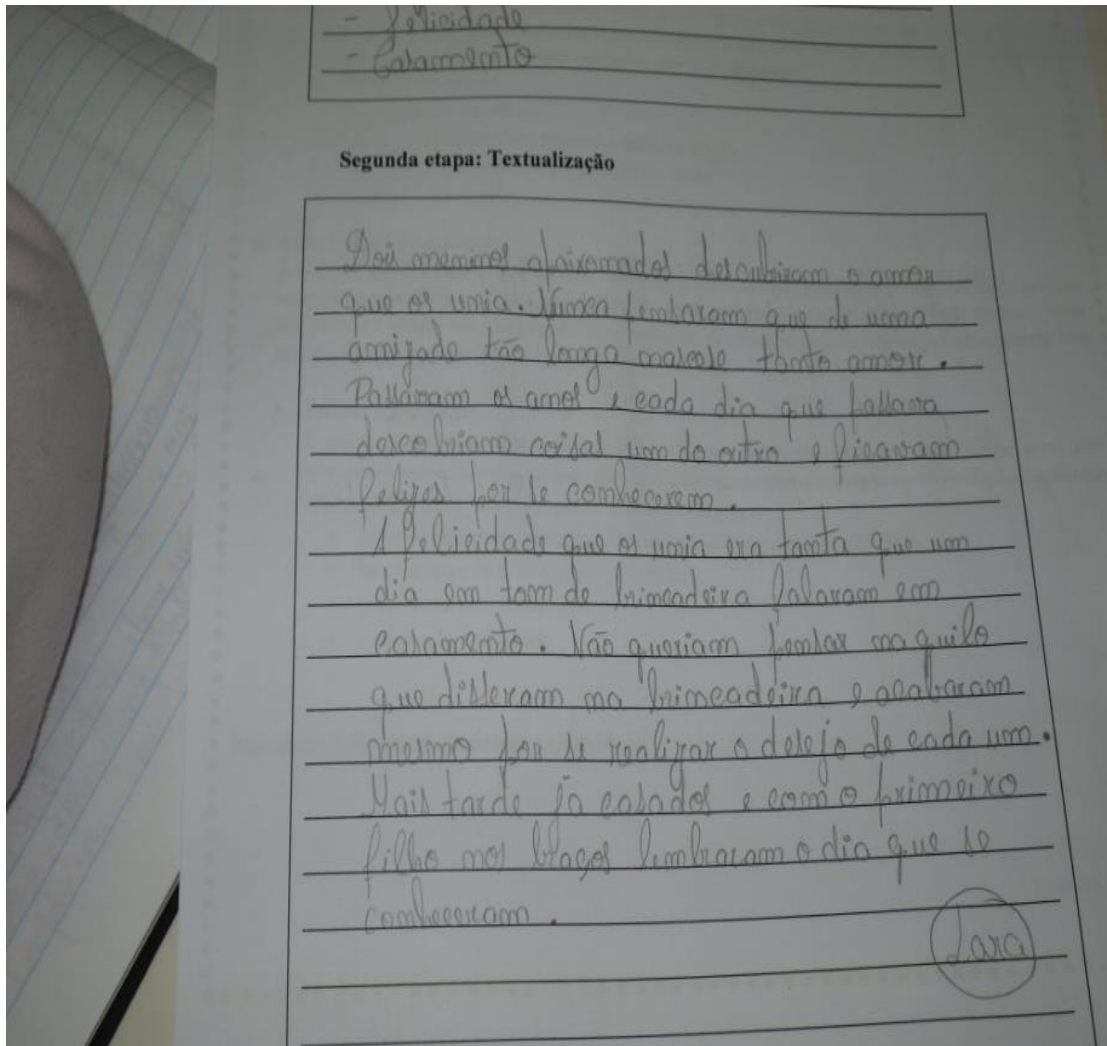 - Felicidade
- Casamento
Segunda etapa: Textualização
Dois meninos apaixonados descubriram o amor
que os unia. Nunca pensaram que de uma
amizade tão longa nascese tanto amor.
Passáram os anos e cada dia que passava
descobriam coisas um do outro e ficavam
felizes por se conhecerem.
A felicidade que os unia era tanta que um
dia em tom de brincadeira falavam em
casamento. Não queriam pensar naquilo
que disseram na brincadeira e acabaram
mesmo por se realizar o desejo de cada um.
Mais tarde já casados e com o primeiro
filho nos braços lembraram o dia que se
conheceram.
Lara